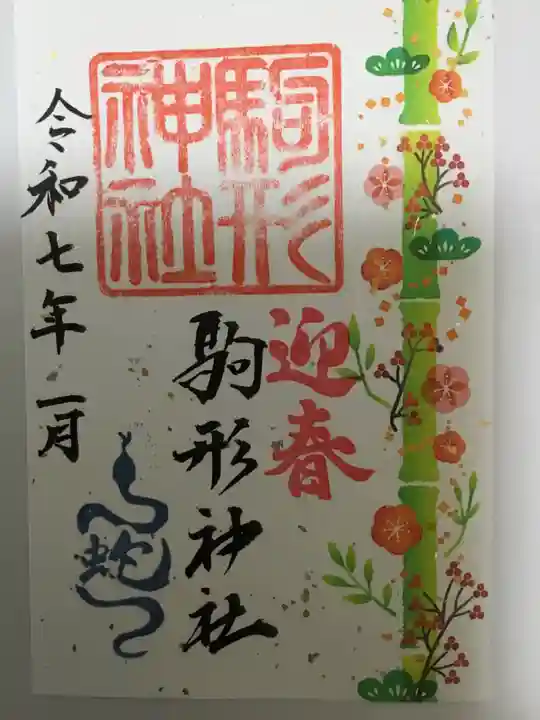 駒形
神社
迎春
駒形神社
令和七年一月
蛇